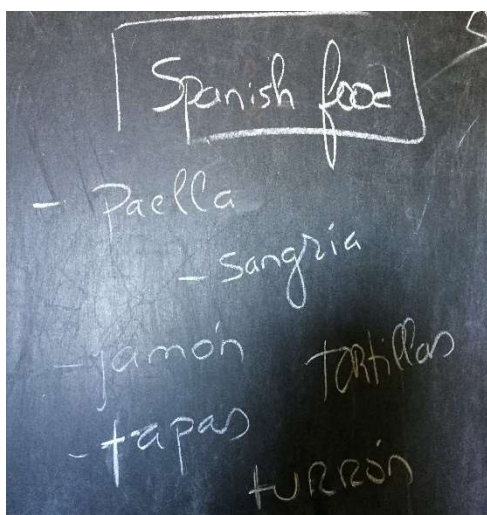 Spanish food
- Paella
- sangria
- jamón
tortillas
- tapas
turrón